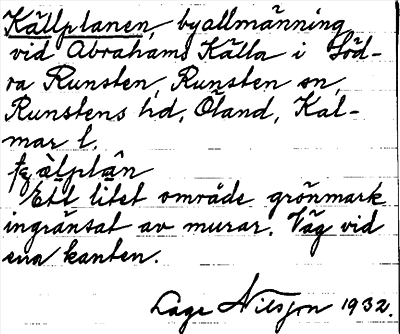 Källplanen, byallmänning
vid Abrahams Källa i Söd-
ra Runsten, Runsten sn,
Runstens hd, Öland, Kal-
mar l.
Ett litet område grönmark
ingränsat av murar. Väg vid
ena kanten.
Lage Nilsson 1932.